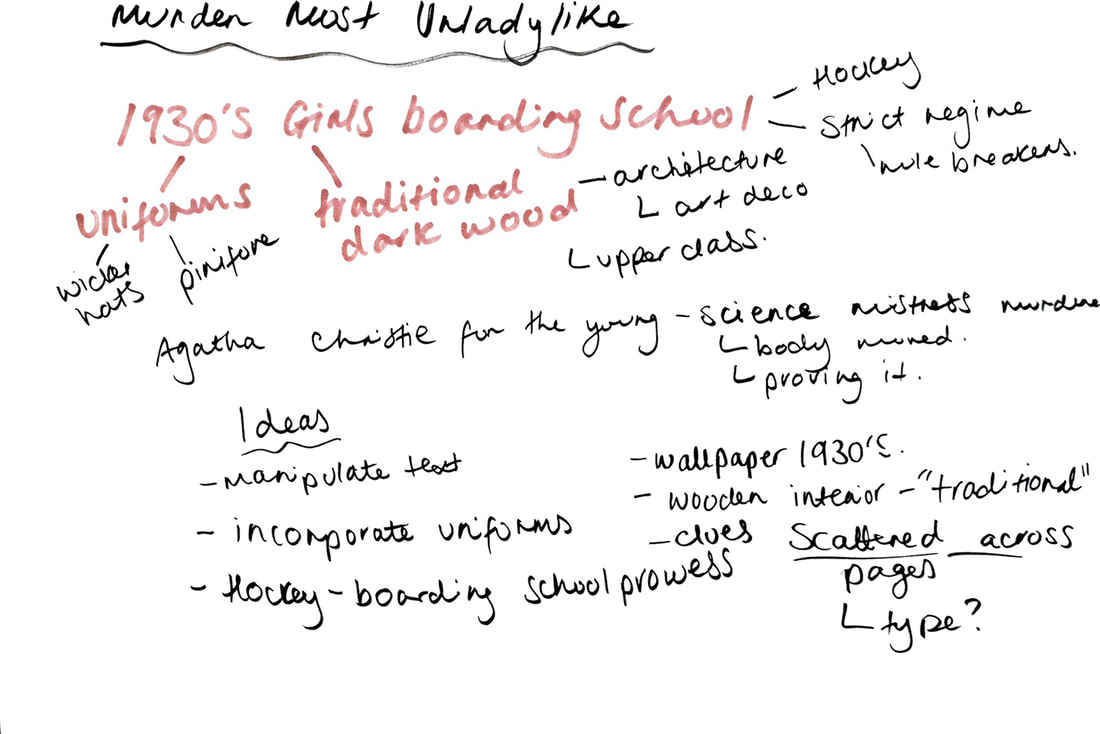 Murder Most Unladylike
1930's Girls boarding school
- Hockey
- strict regime
rule breakers.
uniforms
wicker
hats
pinifore
traditional
dark wood
- architecture
art deco
upper class.
Agatha Christie for the young - science mistress murdere
body moved.
proving it.
Ideas
- manipulate text
- incorporate uniforms
- Hockey - boarding school prowess
- wallpaper 1930's.
- wooden interior - "traditional"
- clues scattered across
pages
type?